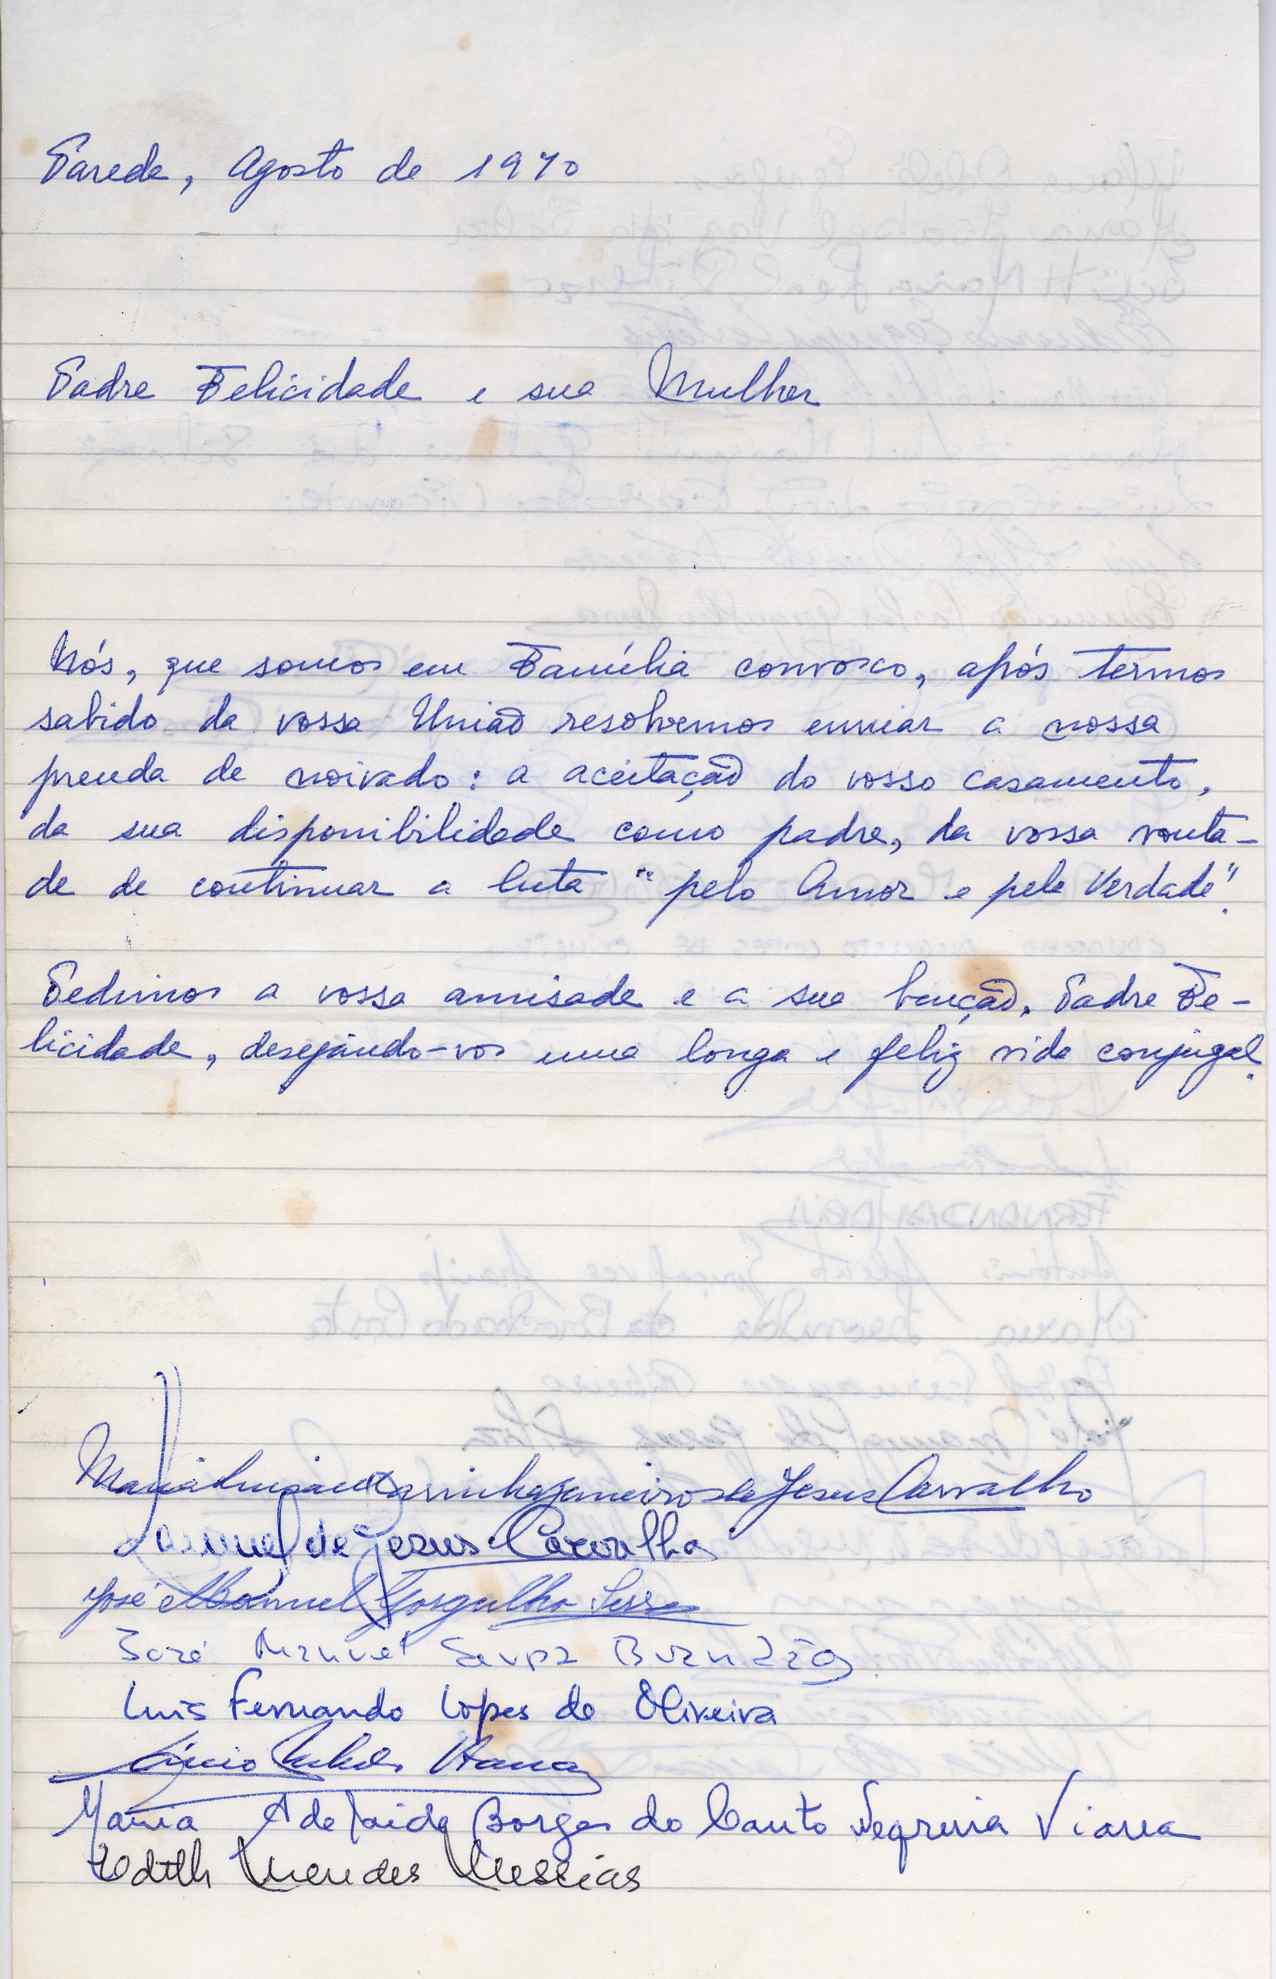 Parede, Agosto de 1970
Padre Felicidade e sua Mulher
Nós, que somos em Família convosco, após termos
sabido da vossa União resolvemos enviar a nossa
prenda de noivado: a aceitação do vosso casamento,
da sua disponibilidade como padre, da vossa vonta-
de de continuar a luta "pelo Amor e pela Verdade".
Pedimos a vossa amisade e a sua benção, Padre Fe-
licidade, desejando-vos uma longa e feliz vida conjugal.
Maria Janeiro de Jesus Carvalho
Manuel de Jesus Carvalho
José Manuel Gorgulho
José Manuel Sousa Brandão
Luís Fernando Lopes de Oliveira
Viana
Maria Adelaide Borges do Canto Viana
Edith Mendes Messias